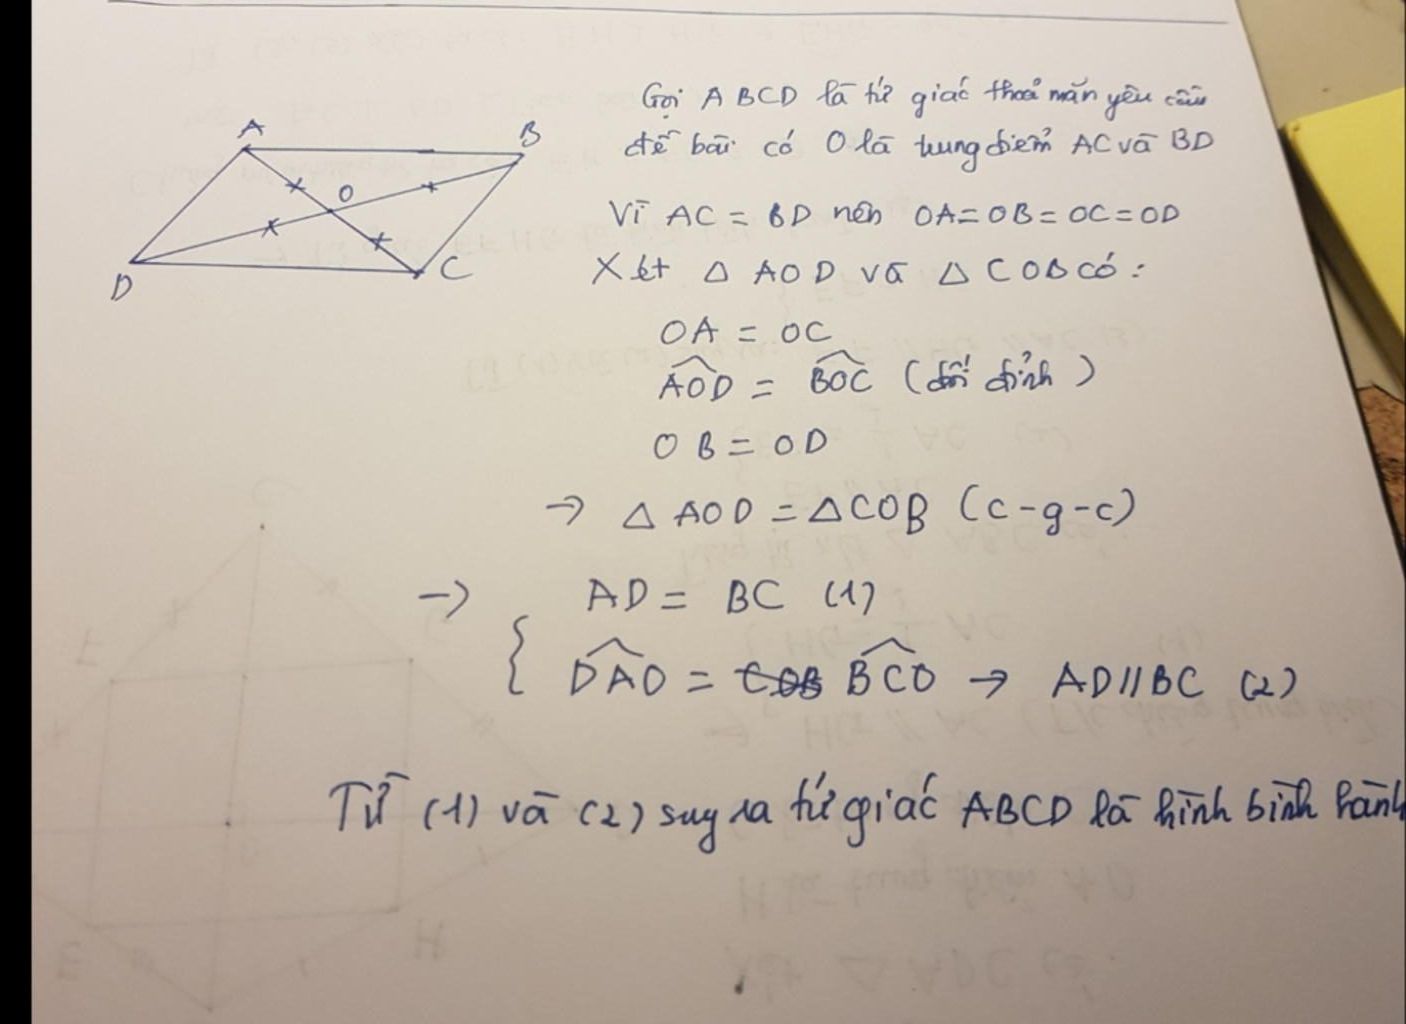 Gọi ABCD là tứ giác thoả mãn yêu cầu
đề bài có O là trung điểm AC và BD
Vì AC = BD nên OA = OB = OC = OD
Xét △ AOD và △ COB có :
OA = OC
AOD = BOC (đối đỉnh)
OB = OD
→ △ AOD = △ COB (c-g-c)
→ AD = BC (1)
{ DAO = BCO → AD // BC (2)
Từ (1) và (2) suy ra tứ giác ABCD là hình bình hành
A
B
O
D
C